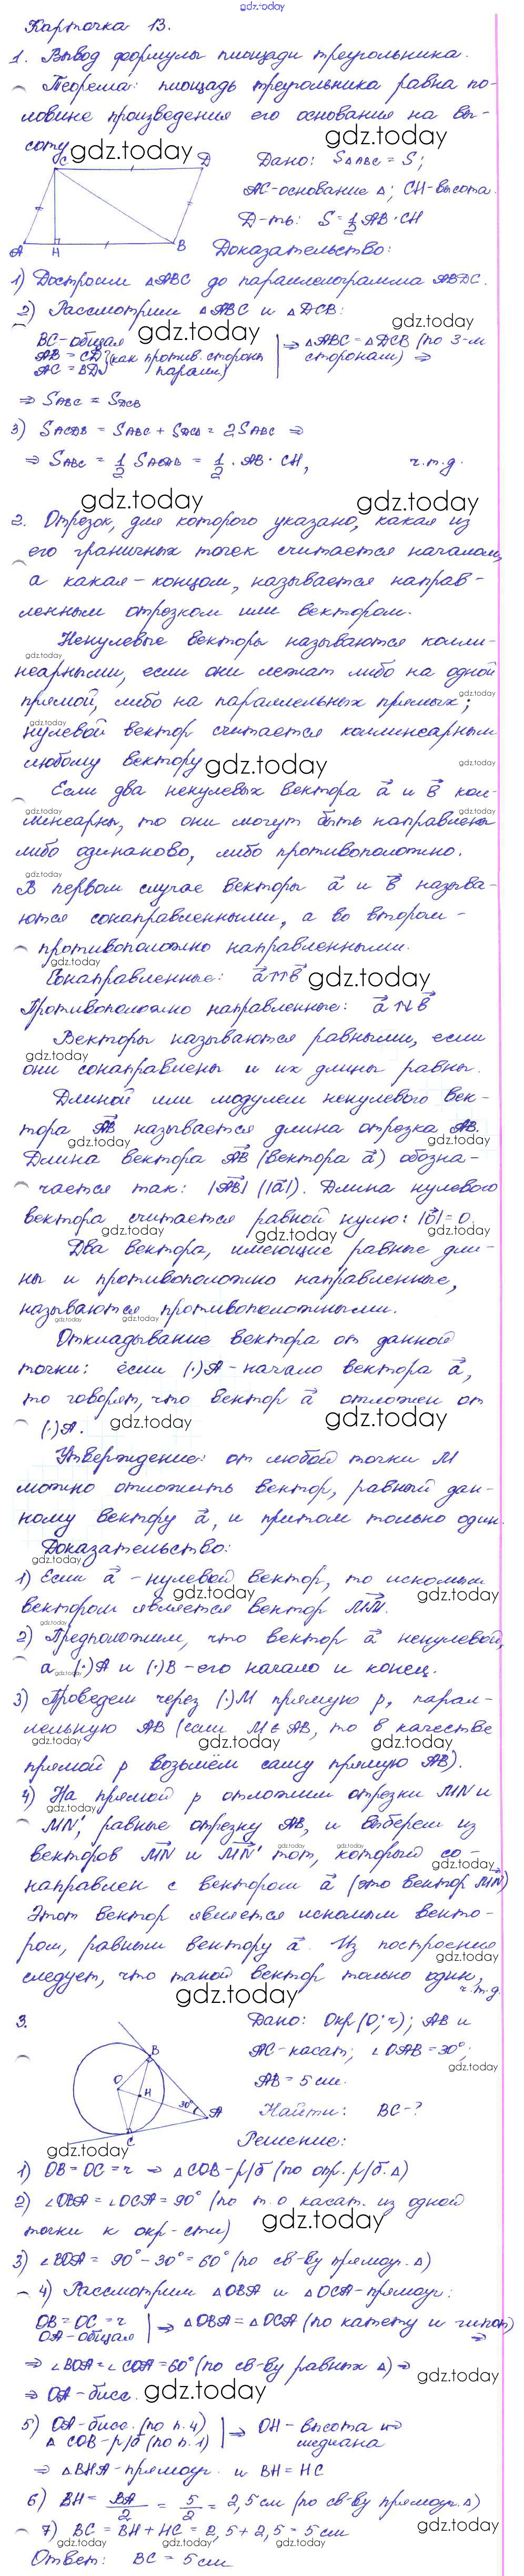 gdz.today
Карточка 13.
1. Вывод формулы площади треугольника.
Теорема: площадь треугольника равна по-
ловине произведения его основание на вы-
соту
C D Дано: S△ABC = S;
AC-основание △; CH-высота.
Д-ть: S = 1/2 AB · CH
A H B Доказательство:
1) Достроим △ABC до параллелограмма ABDC.
2) Рассмотрим △ABC и △DCB:
BC-общая
AB = CD (как против. стороны
AC = BD парал.)
⇒ △ABC = △DCB (по 3-м
сторонам) ⇒
⇒ SABC = SDCB
3) SACDB = SABC + SDCB = 2SABC ⇒
⇒ SABC = 1/2 SACDB = 1/2 · AB · CH, ч.т.д.
2. Отрезок, для которого указано, какая из
его граничных точек считается началом,
а какая - концом, называется направ-
ленным отрезком или вектором.
Ненулевые векторы называются колли-
неарными, если они лежат либо на одной
прямой, либо на параллельных прямых;
нулевой вектор считается коллинеарным
любому вектору
Если два ненулевых вектора a⃗ и b⃗ кол-
линеарны, то они могут быть направлены
либо одинаково, либо противоположно.
В первом случае векторы a⃗ и b⃗ называ-
ются сонаправленными, а во втором -
противоположно направленными.
Сонаправленные: a⃗↑↑b⃗
Противоположно направленные: a⃗↑↓b⃗
Векторы называются равными, если
они сонаправлены и их длины равны.
Длиной или модулем ненулевого век-
тора AB⃗ называется длина отрезка AB.
Длина вектора AB⃗ (вектора a⃗) обозна-
чается так: |AB⃗| (|a⃗|). Длина нулевого
вектора считается равной нулю: |0⃗| = 0.
Два вектора, имеющие равные дли-
ны и противоположно направленные,
называются противоположными.
Откладывание вектора от данной
точки: если (·)A - начало вектора a⃗,
то говорят, что вектор a⃗ отложен от
(·)A.
Утверждение: от любой точки M
можно отложить вектор, равный дан-
ному вектору a⃗, и притом только один.
Доказательство:
1) Если a⃗ - нулевой вектор, то искомым
вектором является вектор MM⃗.
2) Предположим, что вектор a⃗ ненулевой,
а (·)A и (·)B - его начало и конец.
3) Проведем через (·)M прямую p, парал-
лельную AB (если M∈AB, то в качестве
прямой p возьмём саму прямую AB).
4) На прямой p отложим отрезки MN и
MN', равные отрезку AB, и выберем из
векторов MN⃗ и MN'⃗ тот, который со-
направлен с вектором a⃗ (это вектор MN⃗)
Этот вектор является искомым векто-
ром, равным вектору a⃗. Из построения
следует, что такой вектор только один,
ч.т.д.
3. Дано: Окр(O; r); AB и
AC-касат; ∠OAB = 30°;
AB = 5 см.
Найти: BC - ?
B O H 30° A C
Решение:
1) OB = OC = r ⇒ △COB - р/б (по опр. р/б. △)
2) ∠OBA = ∠OCA = 90° (по т. о касат. из одной
точки к окр-сти)
3) ∠BOA = 90° - 30° = 60° (по св-ву прямоуг. △)
4) Рассмотрим △OBA и △OCA - прямоуг:
OB = OC = r
OA - общая
⇒ △OBA = △OCA (по катету и гипот)
⇒
⇒ ∠BOA = ∠COA = 60° (по св-ву равных △) ⇒
⇒ OA - бисс.
5) OA - бисс. (по п. 4)
△COB - р/б (по п. 1)
⇒ OH - высота и
медиана
⇒ △BHA - прямоуг. и BH = HC
6) BH = BA/2 = 5/2 = 2,5 см (по св-ву прямоуг. △)
7) BC = BH + HC = 2,5 + 2,5 = 5 см
Ответ: BC = 5 см